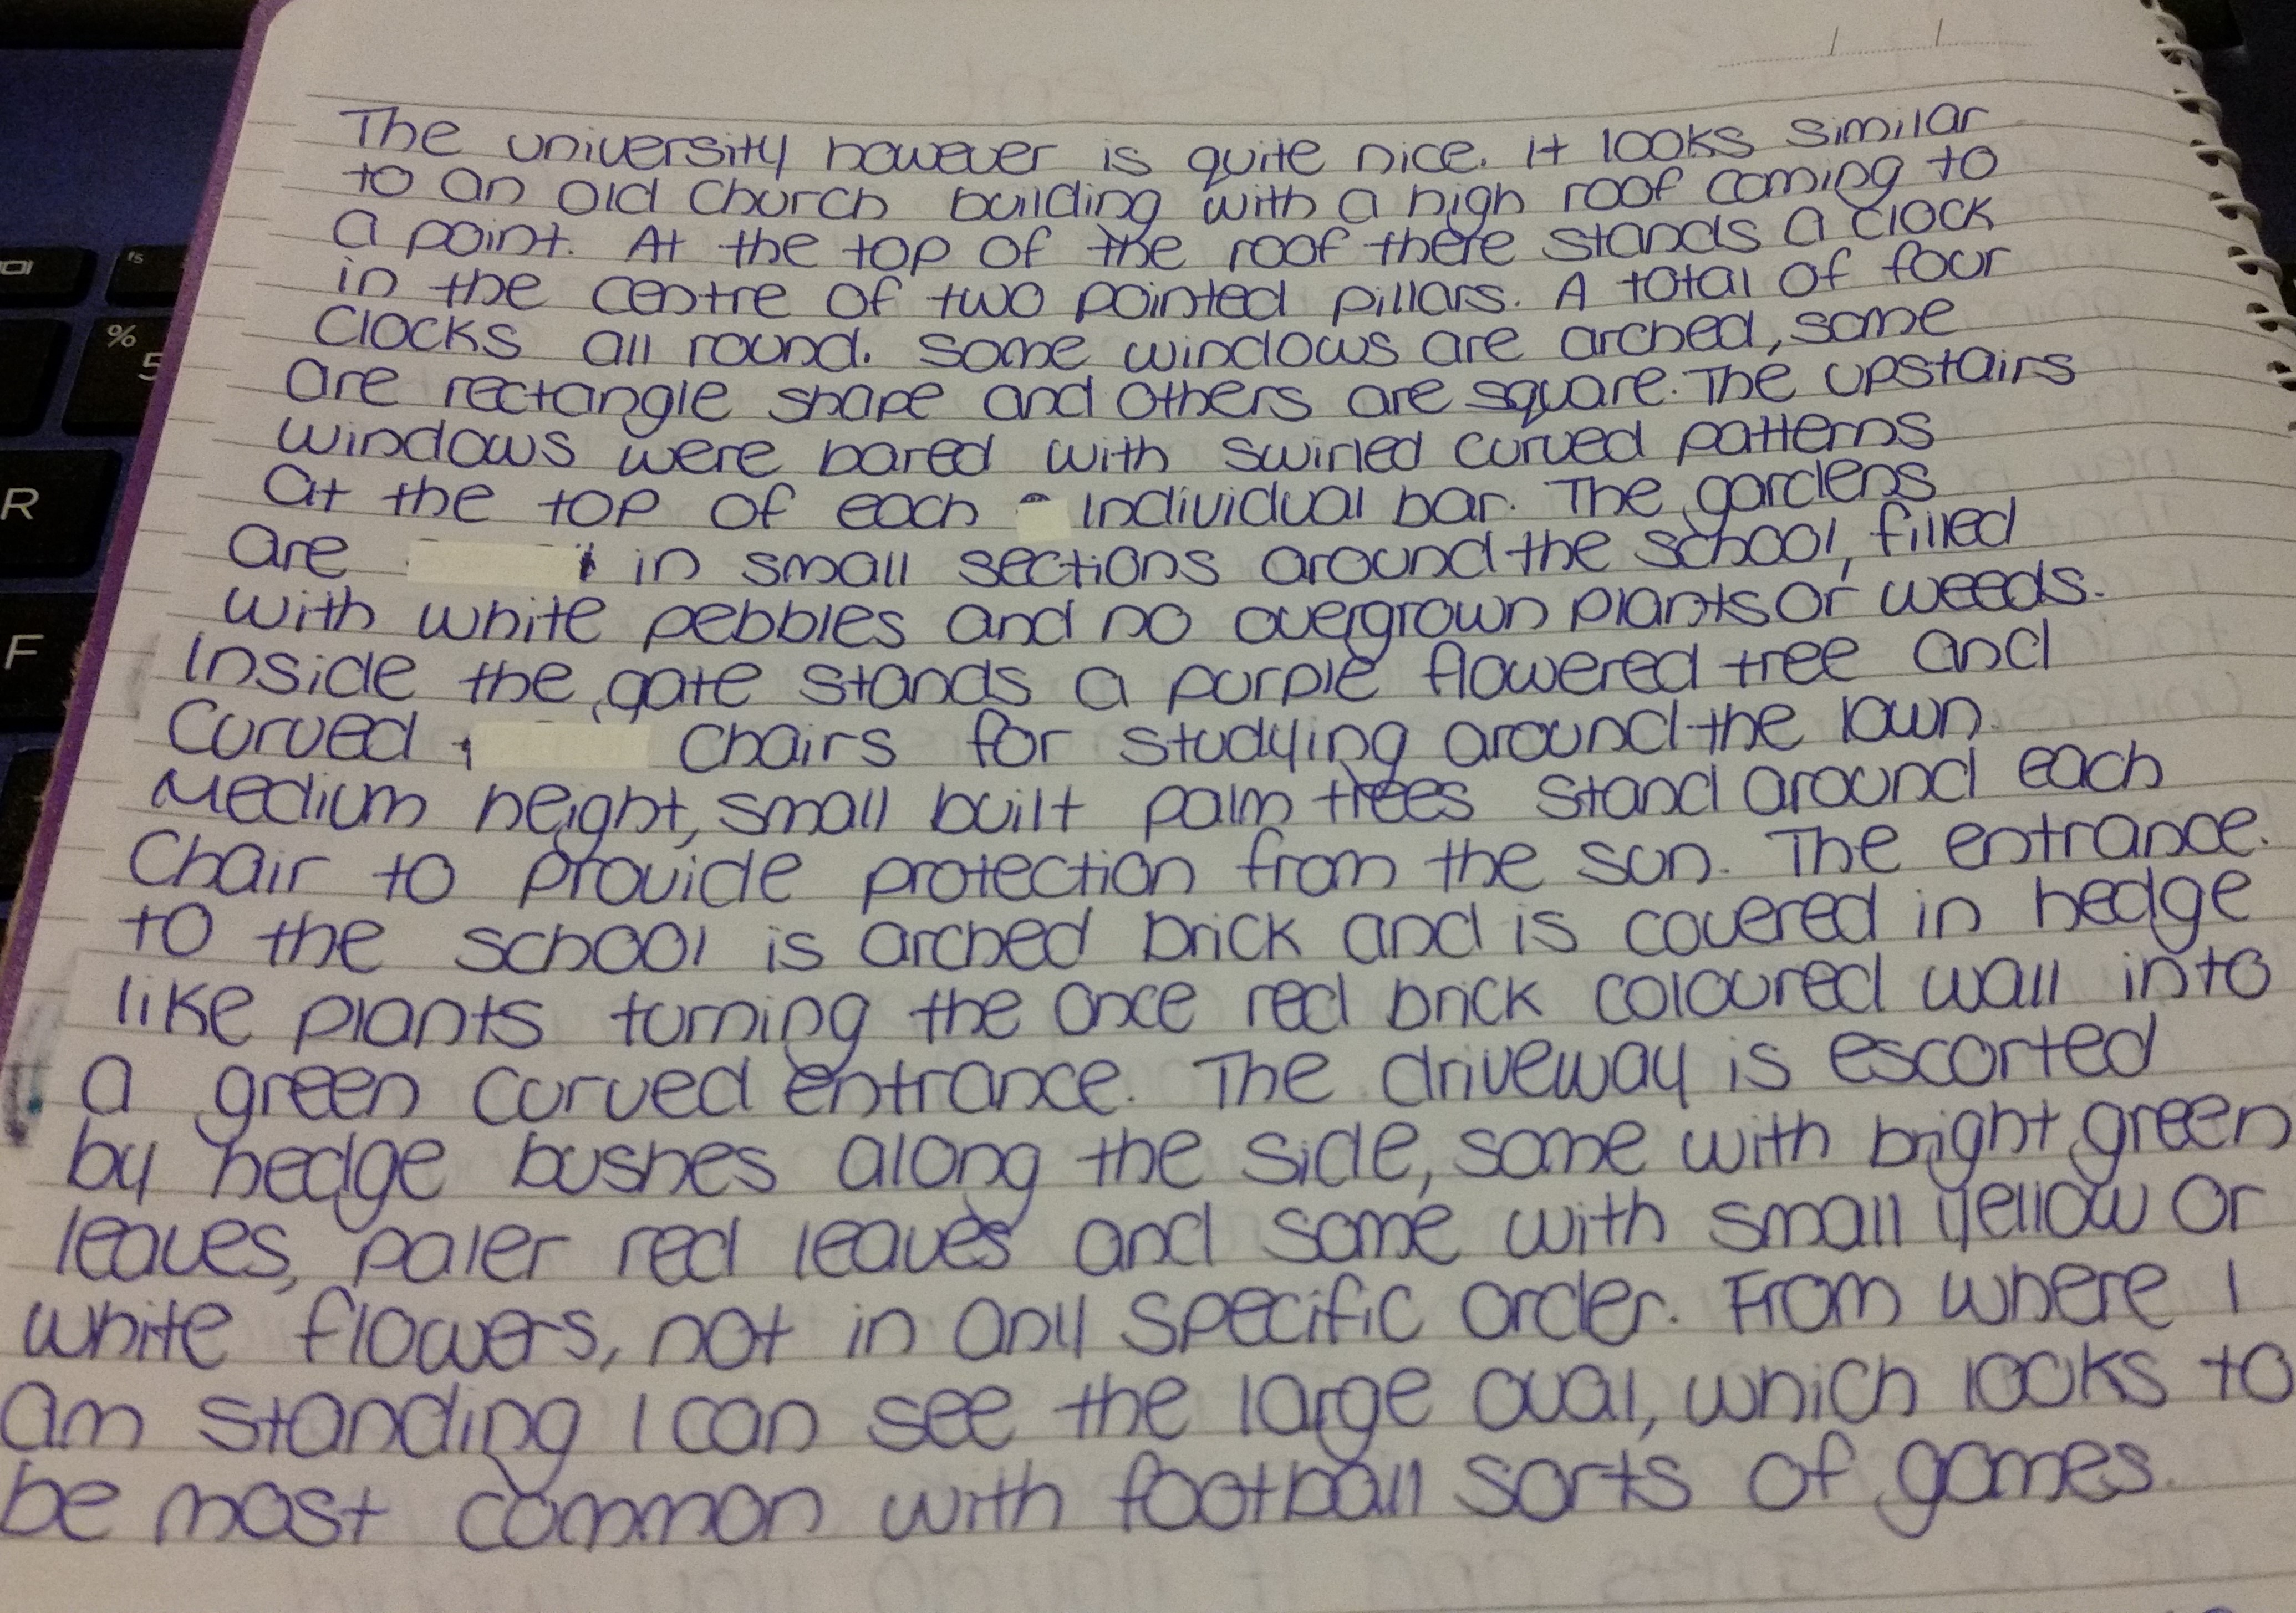 The university however is quite nice. It looks similar
to an old church building with a high roof coming to
a point. At the top of the roof there stands a clock
in the centre of two pointed pillars. A total of four
clocks all round. Some windows are arched, some
are rectangle shape and others are square. The upstairs
windows were bared with swirled curved patterns
at the top of each individual bar. The gardens
are in small sections around the school, filled
with white pebbles and no overgrown plants or weeds.
Inside the gate stands a purple flowered tree and
curved chairs for studying around the lawn.
Medium height, small built palm trees stand around each
chair to provide protection from the sun. The entrance.
to the school is arched brick and is covered in hedge
like plants turning the once red brick coloured wall into
a green curved entrance. The driveway is escorted
by hedge bushes along the side, some with bright green
leaves, paler red leaves and some with small yellow or
white flowers, not in any specific order. From where I
am standing I can see the large oval, which looks to
be most common with football sorts of games.
%
5
f5
R
F